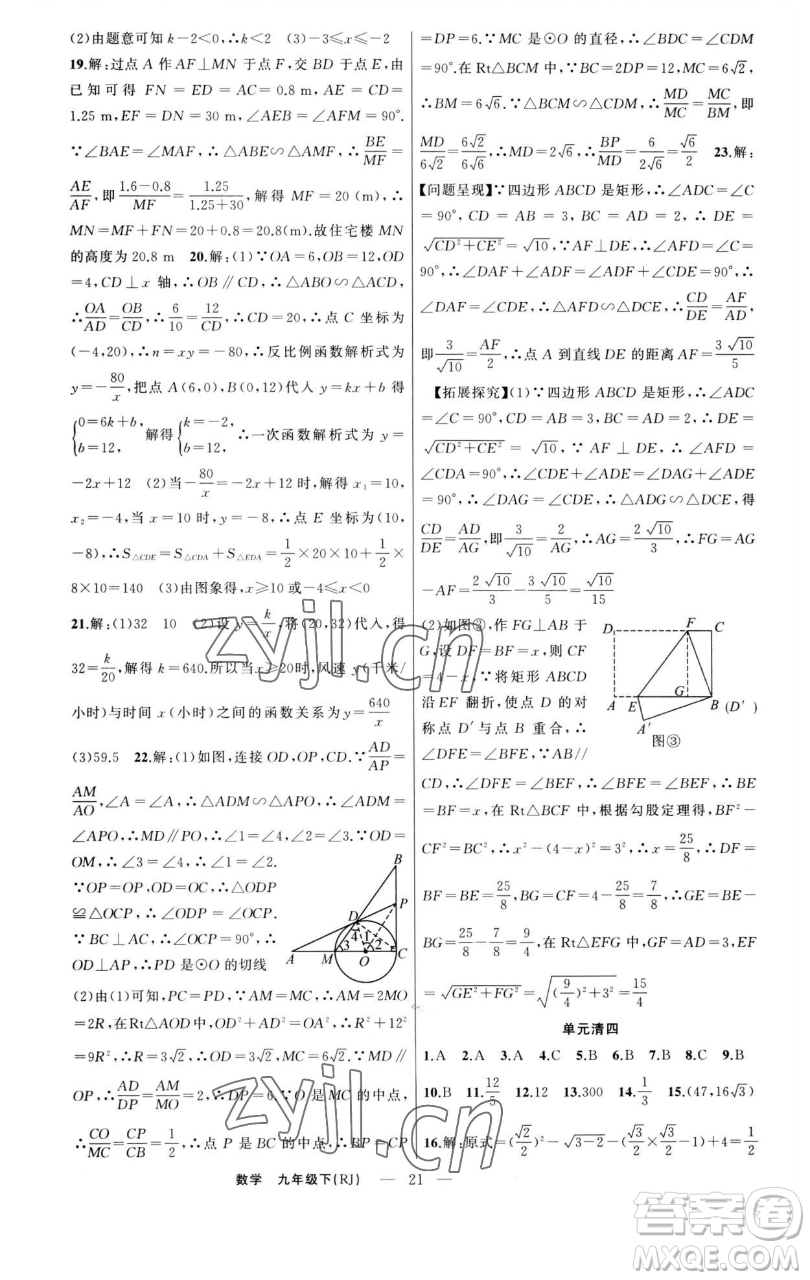 (2)由题意可知 k-2<0,∴k<2 (3)-3≤x≤-2
19.解:过点 A 作 AF⊥MN 于点 F,交 BD 于点 E,由
已知可得 FN=ED=AC=0.8 m,AE=CD=
1.25 m,EF=DN=30 m,∠AEB=∠AFM=90°.
∵∠BAE=∠MAF,∴△ABE∽△AMF,∴BE/MF=
AE/AF,即(1.6-0.8)/MF=1.25/(1.25+30),解得 MF=20 (m),∴
MN=MF+FN=20+0.8=20.8(m).故住宅楼 MN
的高度为 20.8 m 20.解:(1)∵OA=6,OB=12,OD
=4,CD⊥x 轴,∴OB∥CD,∴△ABO∽△ACD,
∴OA/AD=OB/CD,∴6/10=12/CD,∴CD=20,∴点 C 坐标为
(-4,20),∴n=xy=-80,∴反比例函数解析式为
y=-80/x,把点 A(6,0),B(0,12)代入 y=kx+b 得
{0=6k+b, b=12, 解得{k=-2, b=12, ∴一次函数解析式为 y=
-2x+12 (2)当-80/x=-2x+12 时,解得 x₁=10,
x₂=-4,当 x=10 时,y=-8,∴点 E 坐标为(10,
-8),∴S△CDE=S△CDA+S△EDA=1/2×20×10+1/2×
8×10=140 (3)由图象得,x≥10 或-4≤x<0
21.解:(1)32 10 (2)设 y=k/x,将(20,32)代入,得
32=k/20,解得 k=640.所以当 x≥20时,风速 y(千米/
小时)与时间 x(小时)之间的函数关系为 y=640/x
(3)59.5 22.解:(1)如图,连接 OD,OP,CD.∵AD/AP=
AM/AO,∠A=∠A,∴△ADM∽△APO,∴∠ADM=
∠APO,∴MD∥PO,∴∠1=∠4,∠2=∠3.∵OD=
OM,∴∠3=∠4,∴∠1=∠2.
∵OP=OP,OD=OC,∴△ODP
≌△OCP,∴∠ODP=∠OCP.
∵BC⊥AC,∴∠OCP=90°,∴
OD⊥AP,∴PD是⊙O的切线
A M O C B P D 1 2 3 4
(2)由(1)可知,PC=PD,∵AM=MC,∴AM=2MO
=2R,在Rt△AOD 中,OD²+AD²=OA²,∴R²+12²
=9R²,∴R=3√2,∴OD=3√2,MC=6√2.∵MD∥
OP,∴AD/DP=AM/MO=2,∴DP=6.∵O 是 MC 的中点,
∴CO/MC=CP/CB=1/2,∴点 P 是 BC 的中点,∴BP=CP
=DP=6.∵MC 是⊙O 的直径,∴∠BDC=∠CDM=
90°.在 Rt△BCM 中,∵BC=2DP=12,MC=6√2,
∴BM=6√6.∵△BCM∽△CDM,∴MD/MC=MC/BM,即
MD/6√2=6√2/6√6,∴MD=2√6,∴BP/MD=6/2√6=√6/2 23.解:
【问题呈现】∵四边形 ABCD 是矩形,∴∠ADC=∠C
=90°,CD=AB=3,BC=AD=2,∴DE=
√(CD²+CE²)=√10,∵AF⊥DE,∴∠AFD=∠C=
90°,∴∠DAF+∠ADF=∠ADF+∠CDE=90°,∴
∠DAF=∠CDE,∴△ADF∽△DCE,∴CD/DE=AF/AD,
即3/√10=AF/2,∴点 A 到直线 DE 的距离 AF=3√10/5
【拓展探究】(1)∵四边形 ABCD 是矩形,∴∠ADC
=∠C=90°,CD=AB=3,BC=AD=2,∴DE=
√(CD²+CE²)=√10,∵AF⊥DE,∴∠AFD=
∠CDA=90°,∴∠CDE+∠ADE=∠DAG+∠ADE
=90°,∴∠DAG=∠CDE,∴△ADG∽△DCE,得
CD/DE=AD/AG,即3/√10=2/AG,∴AG=2√10/3,∴FG=AG
-AF=2√10/3-3√10/5=√10/15
(2)如图③,作 FG⊥AB 于
G,设 DF=BF=x,则 CF
=4-x,∵将矩形 ABCD
沿 EF 翻折,使点 D 的对
称点 D′与点 B 重合,∴
∠DFE=∠BFE.∵AB∥
D F C A E G B (D′) A′
图③
CD,∴∠DFE=∠BEF,∴∠BFE=∠BEF,∴BE
=BF=x,在 Rt△BCF 中,根据勾股定理得,BF²-
CF²=BC²,∴x²-(4-x)²=3²,∴x=25/8,∴DF=
BF=BE=25/8,BG=CF=4-25/8=7/8,∴GE=BE-
BG=25/8-7/8=9/4,在 Rt△EFG 中,GF=AD=3,EF
=√(GE²+FG²)=√((9/4)²+3²)=15/4
单元清四
1.A 2.A 3.A 4.C 5.B 6.C 7.B 8.C 9.B
10.B 11.12/5 12.12 13.300 14.1/3 15.(47,16√3)
16.解:原式=(√2/2)²-√3-2-(√3/2×2/√3-1)+4=1/2
数学 九年级下(RJ) — 21 —
zyjl.cn
zyjl.cn
答案圈
MXQE.COM